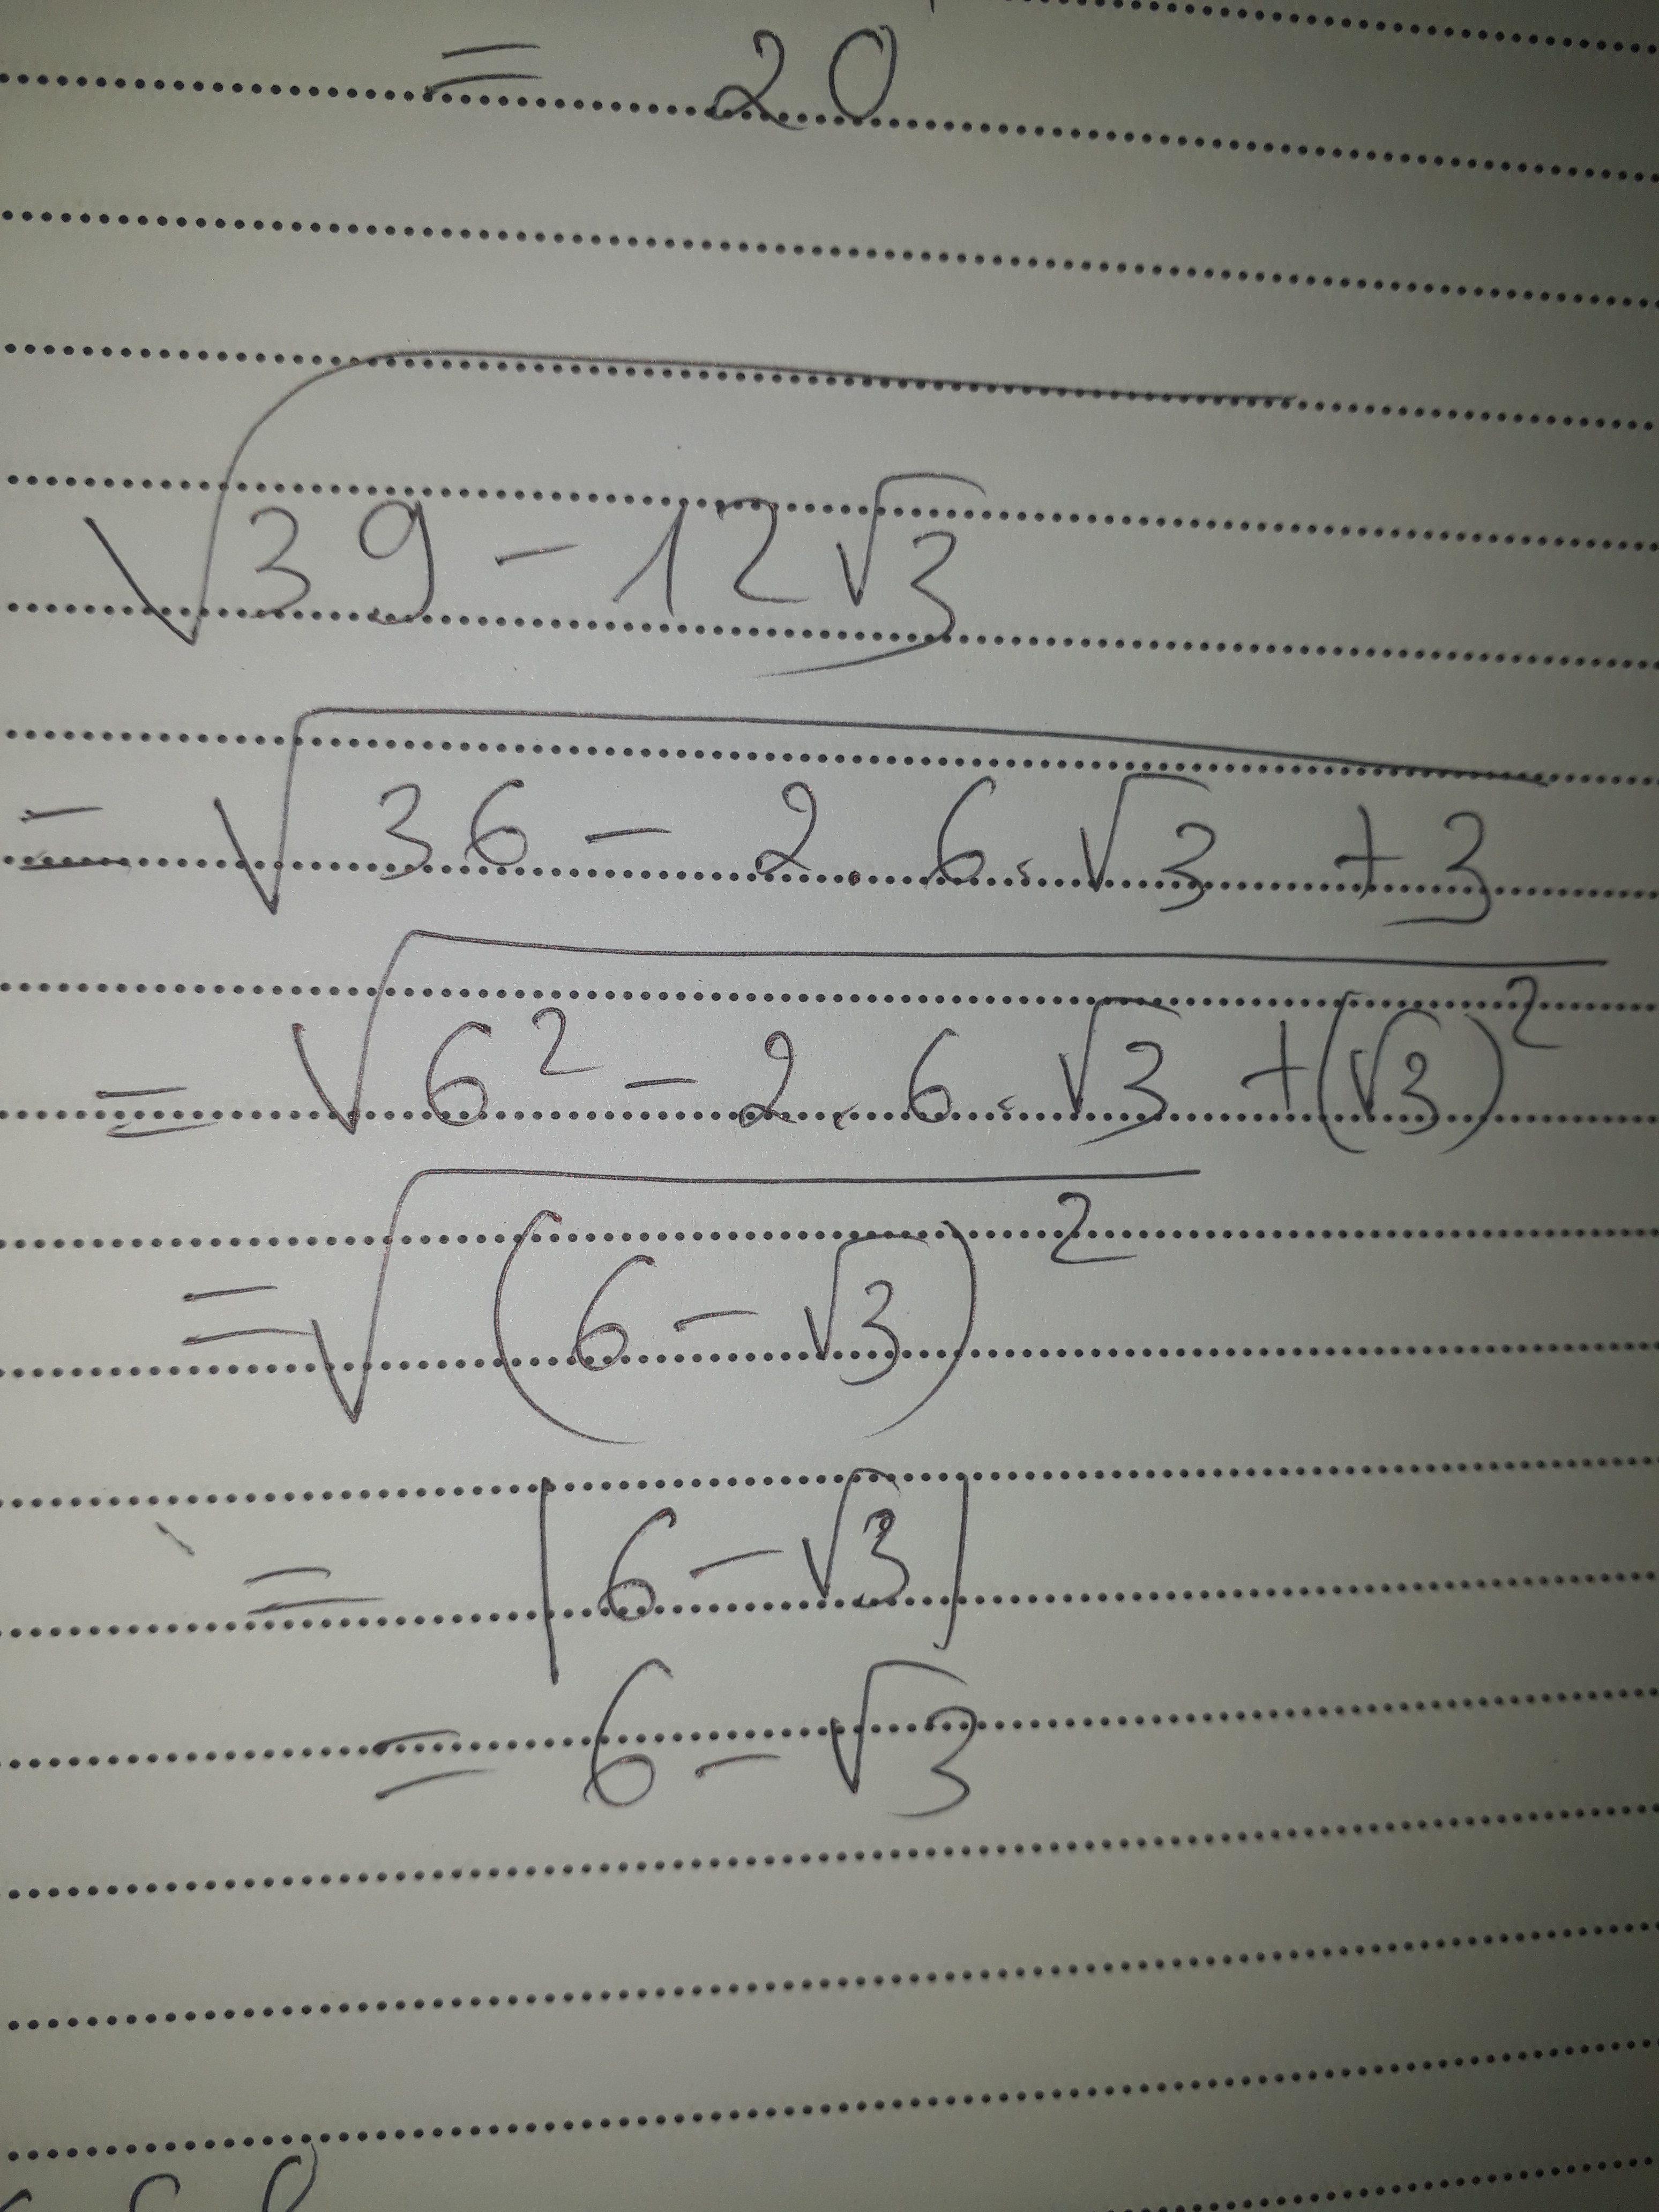 = 20
√(39 - 12√3)
= √(36 - 2 . 6 . √3 + 3)
= √(6² - 2 . 6 . √3 + (√3)²)
= √((6 - √3)²)
= |6 - √3|
= 6 - √3